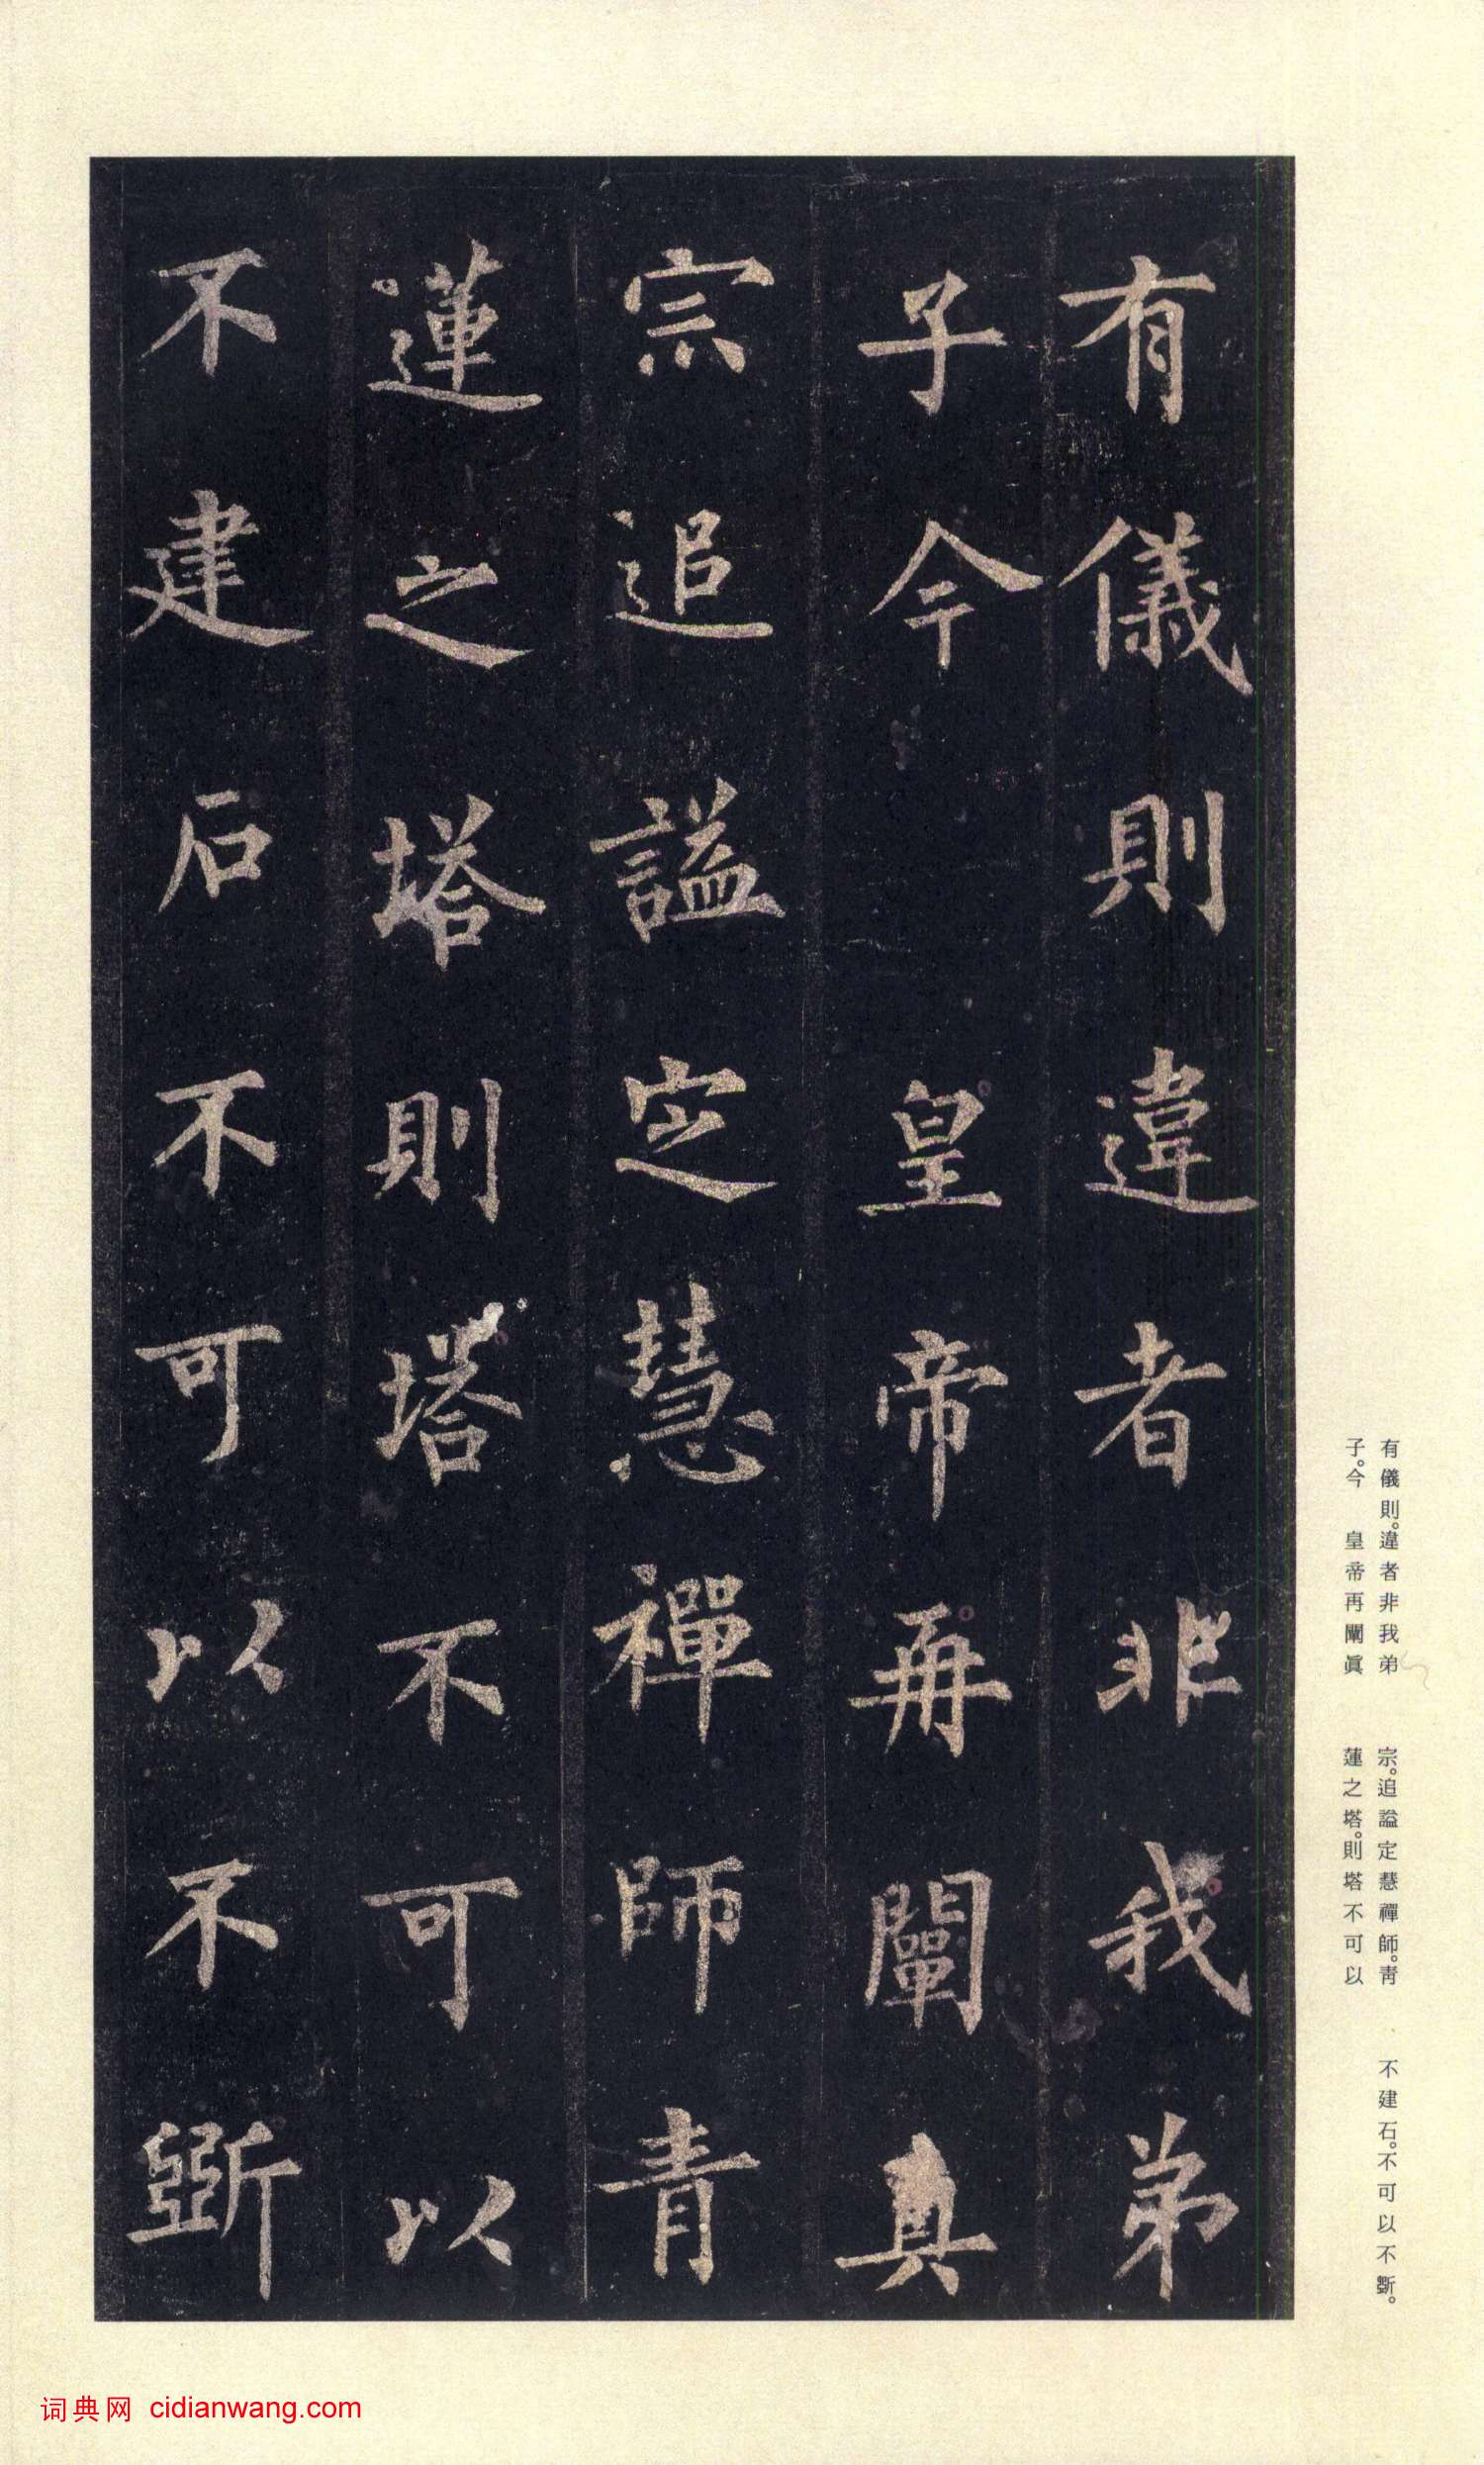 有儀則違者非我弟
子今 皇帝再闡真
宗追謚定慧禪師青
蓮之塔則塔不可以
不建石不可以不斲
有儀則。違者非我弟
子。今 皇帝再闡眞
宗。追謚定慧禪師。靑
蓮之塔。則塔不可以
不建石。不可以不斲。
词典网 cidianwang.com